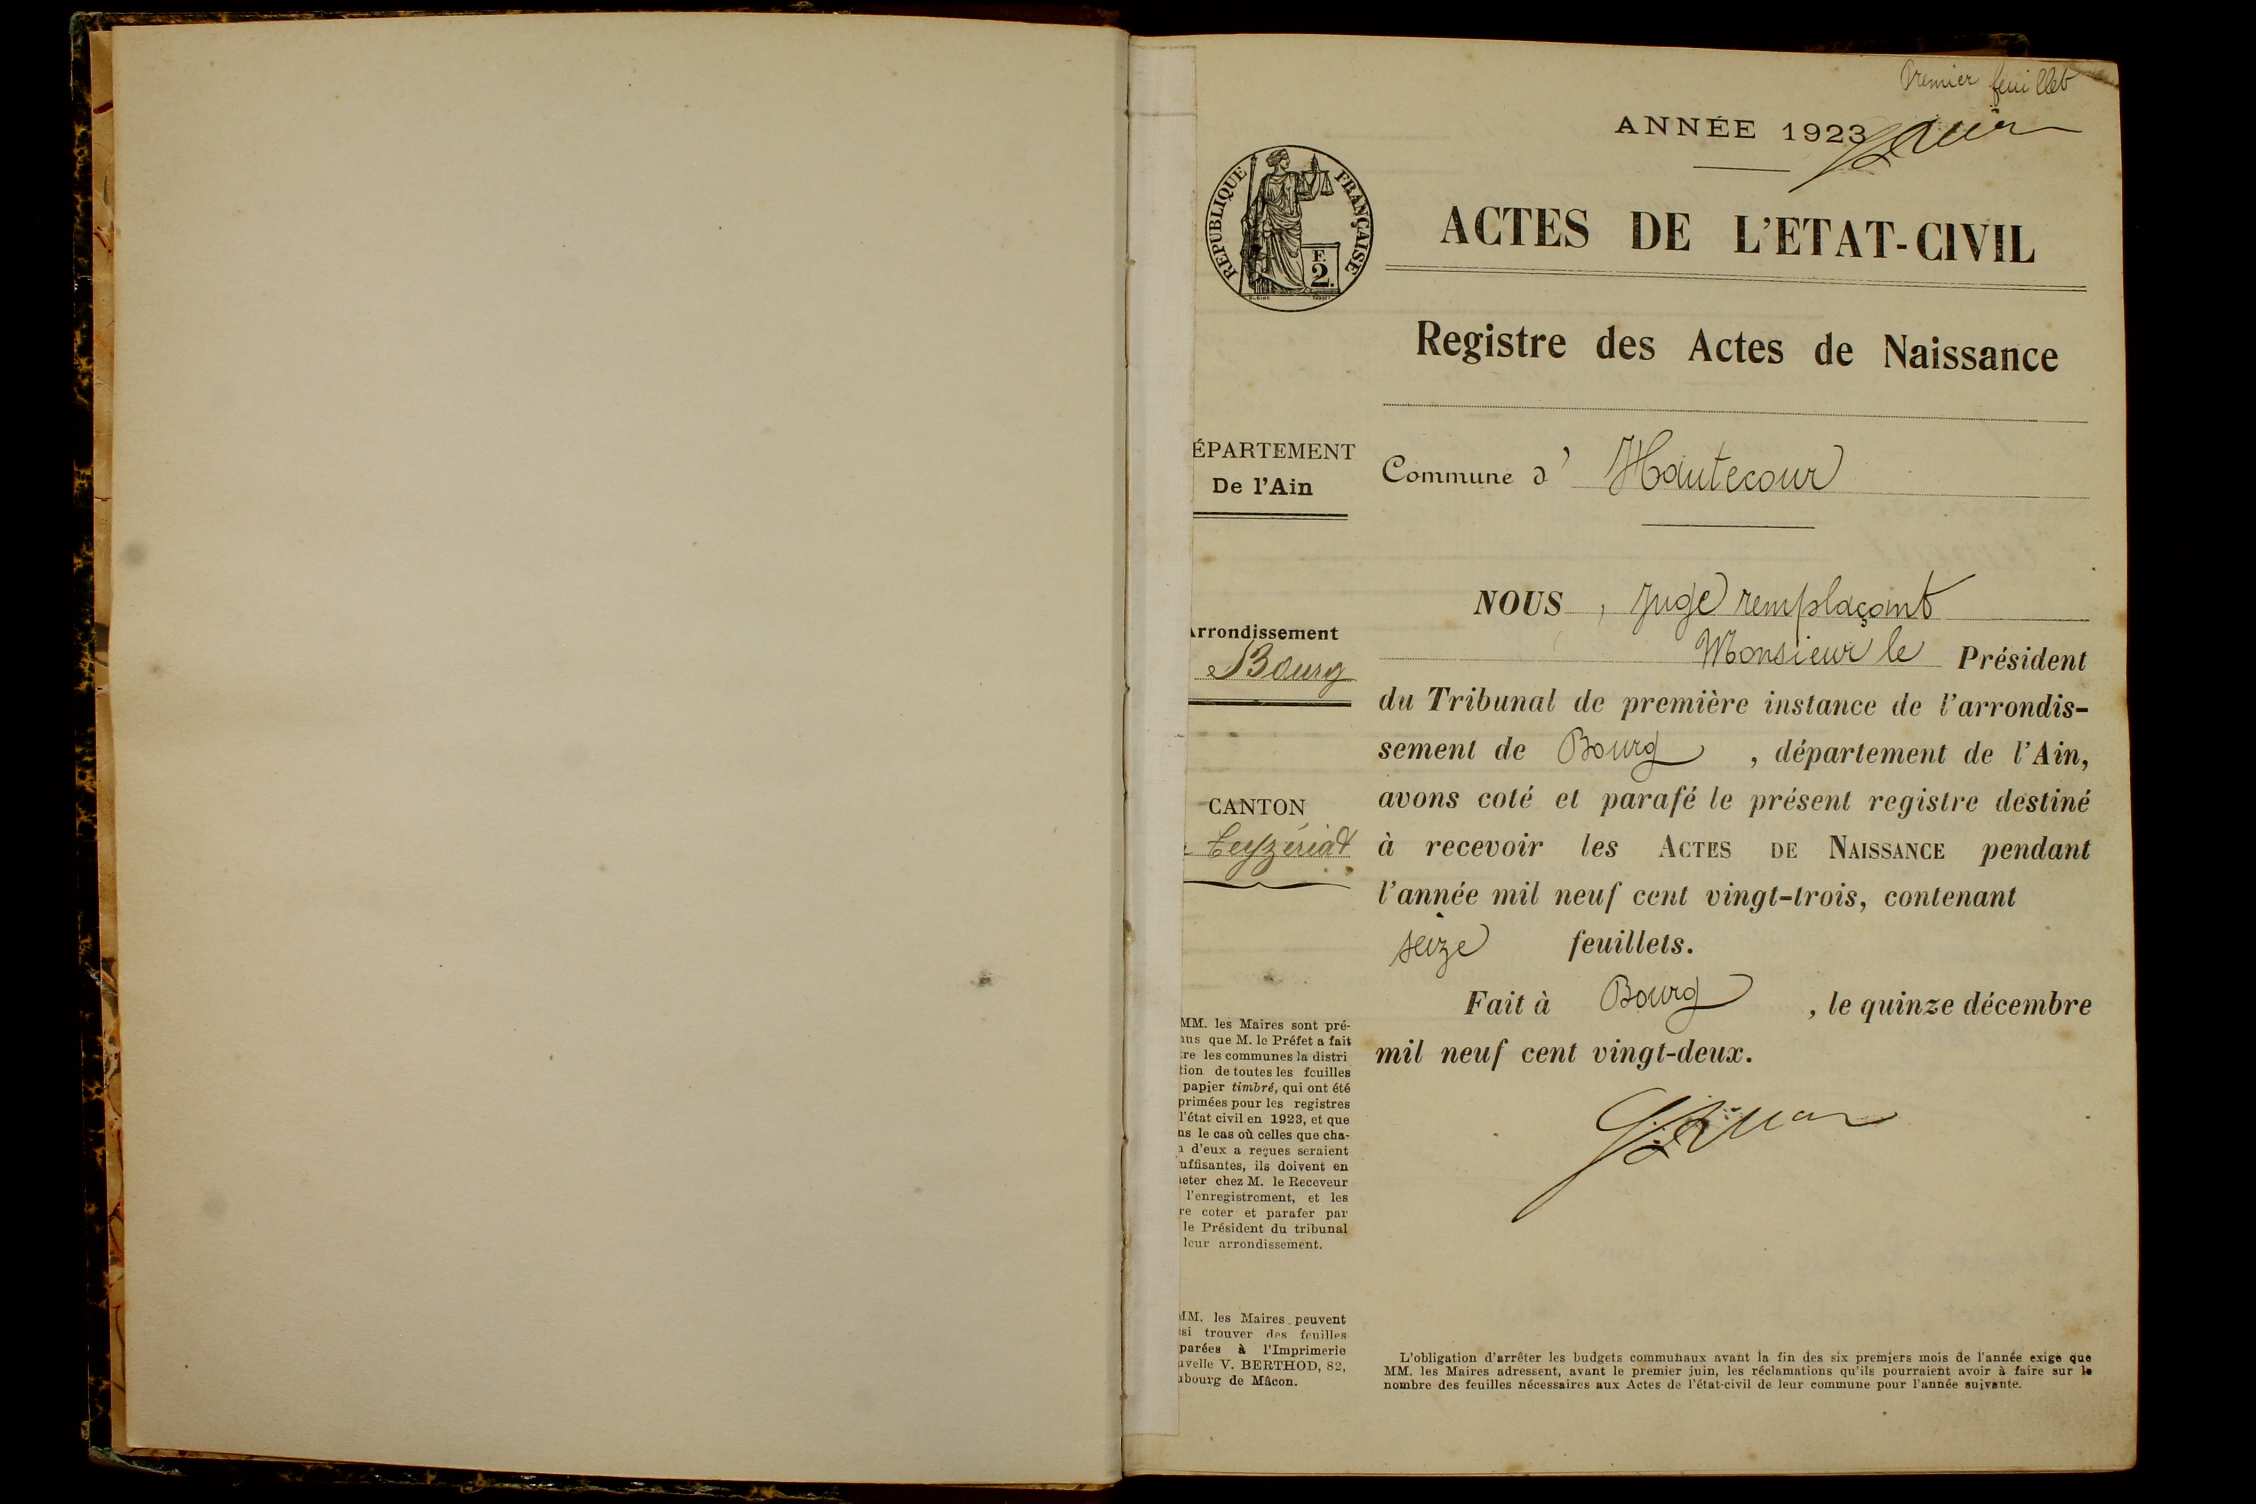 Premier feuillet
ANNÉE 1923
RÉPUBLIQUE FRANÇAISE
F.
2.
ACTES DE L'ETAT-CIVIL
Registre des Actes de Naissance
ÉPARTEMENT
De l'Ain
Commune d' Hautecour
NOUS, Juge remplaçant
Monsieur le Président
du Tribunal de première instance de l'arrondis-
sement de Bourg, département de l'Ain,
avons coté et parafé le présent registre destiné
à recevoir les ACTES DE NAISSANCE pendant
l'année mil neuf cent vingt-trois, contenant
seize feuillets.
Fait à Bourg, le quinze décembre
mil neuf cent vingt-deux.
rrondissement
Bourg
CANTON
Ceyzériat
MM. les Maires sont pré-
nus que M. le Préfet a fait
re les communes la distri
tion de toutes les feuilles
papier timbré, qui ont été
primées pour les registres
l'état civil en 1923, et que
ns le cas où celles que cha-
n d'eux a reçues seraient
uffisantes, ils doivent en
heter chez M. le Receveur
l'enregistrement, et les
re coter et parafer par
le Président du tribunal
leur arrondissement.
MM. les Maires peuvent
si trouver des feuilles
parées à l'Imprimerie
uvelle V. BERTHOD, 82,
ubourg de Mâcon.
L'obligation d'arrêter les budgets communaux avant la fin des six premiers mois de l'année exige que
MM. les Maires adressent, avant le premier juin, les réclamations qu'ils pourraient avoir à faire sur le
nombre des feuilles nécessaires aux Actes de l'état-civil de leur commune pour l'année suivante.